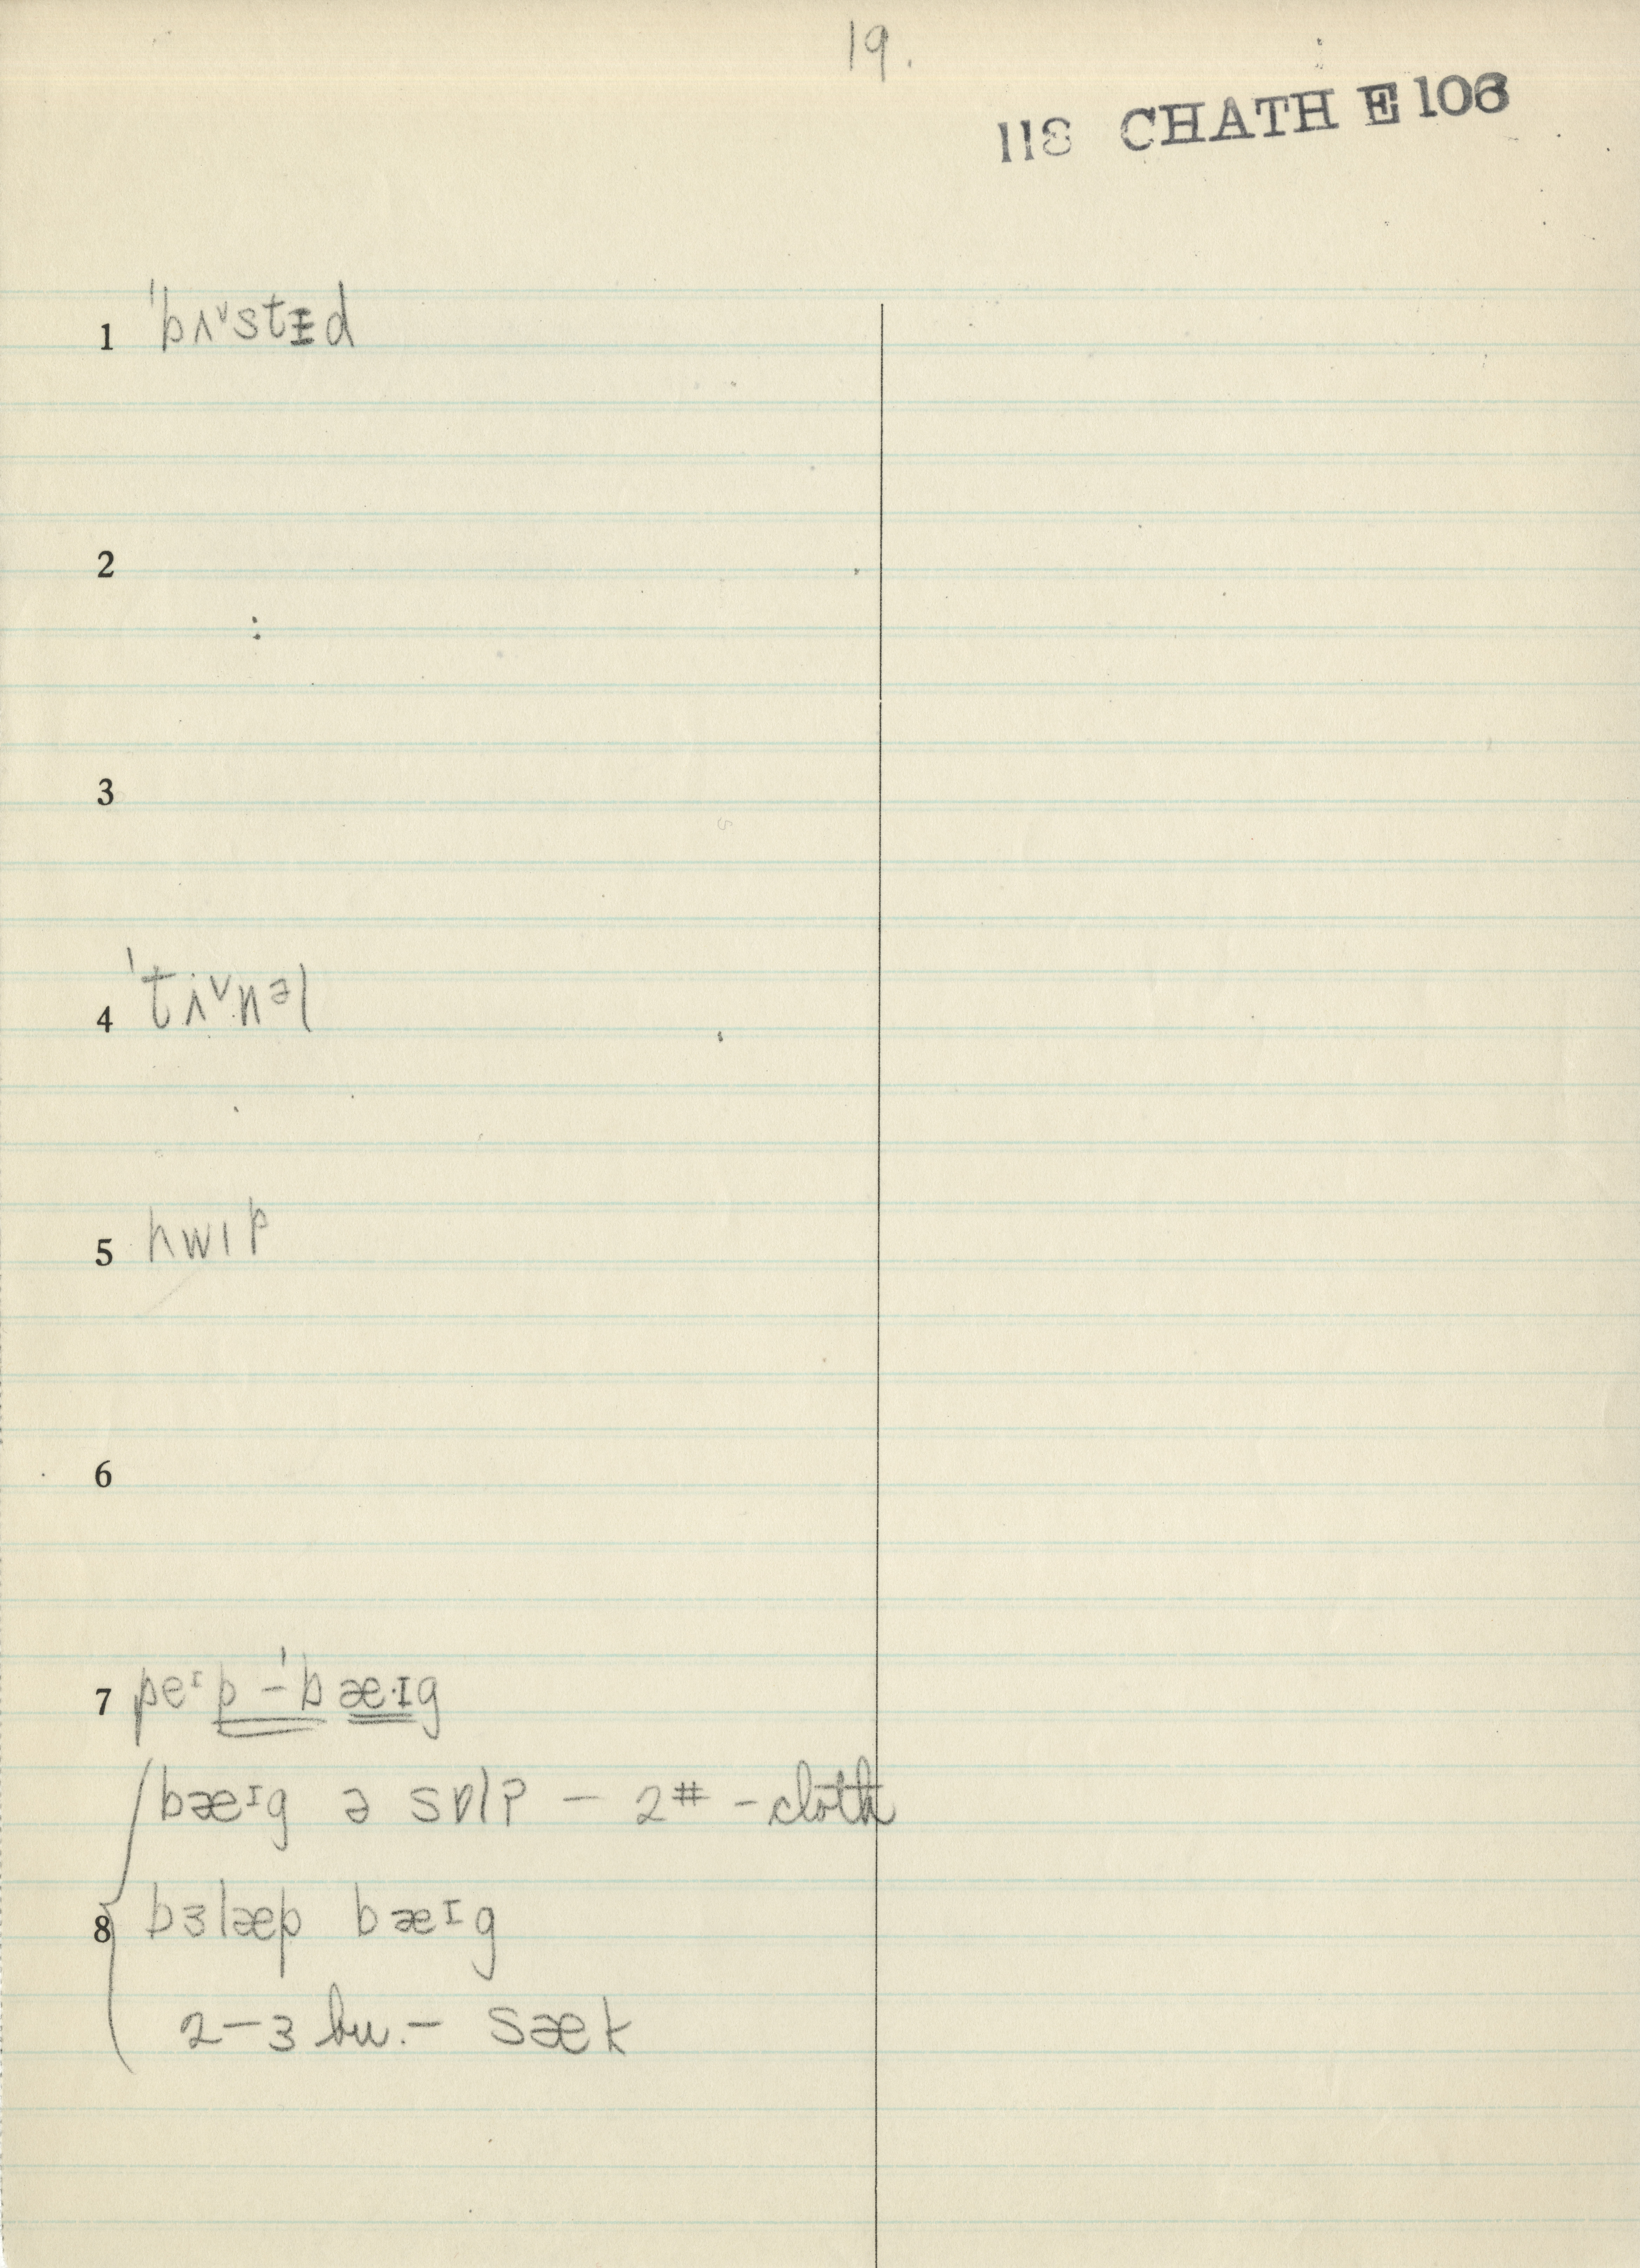 19.
118 CHATH E 106
1 ˈbʌ˅stɨd
2
3
4 ˈtʌ˅nəl
5 hwɪp
6
7 peᶦp-ˈbæ·ɪg
bæᶦg ə sɒlʔ – 2# – cloth
8 bɜlæp bæᶦg
2–3 bu. – sæk